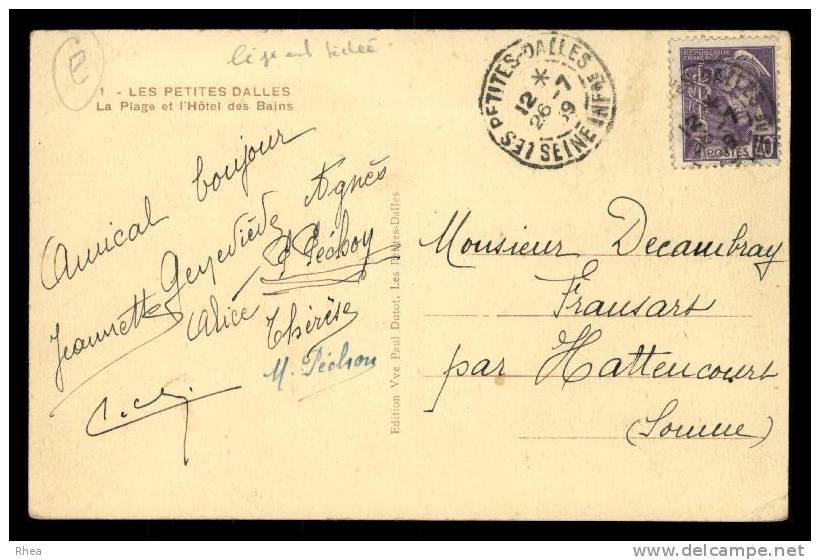 1 - LES PETITES DALLES
La Plage et l'Hôtel des Bains
Amical bonjour
Jeannette Geneviève Agnès
Alice P Péchoy
Thérèse
M. Péchon
Edition Vve Paul Dutot, Les Petites-Dalles
LES PETITES-DALLES SEINE INFRE
12 *
26 -7
39
REPUBLIQUE FRANÇAISE
POSTES
40
Monsieur Decambray
Fransart
par Hattencourt
(Somme)
Rhea
delcampe.net